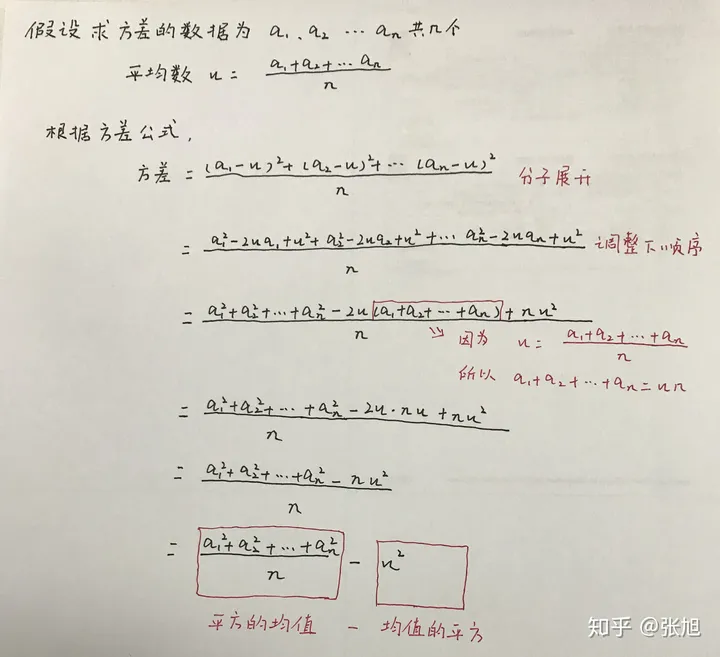 假设求方差的数据为 a₁、a₂ … aₙ 共n个
平均数 u = (a₁+a₂+…aₙ)/n
根据方差公式,
方差 = ((a₁-u)²+(a₂-u)²+…(aₙ-u)²)/n 分子展开
= (a₁²-2ua₁+u²+a₂²-2ua₂+u²+…aₙ²-2uaₙ+u²)/n 调整下顺序
= (a₁²+a₂²+…+aₙ²-2u(a₁+a₂+…+aₙ)+nu²)/n
因为 u = (a₁+a₂+…+aₙ)/n
所以 a₁+a₂+…+aₙ=un
= (a₁²+a₂²+…+aₙ²-2u·nu+nu²)/n
= (a₁²+a₂²+…+aₙ²-nu²)/n
= (a₁²+a₂²+…+aₙ²)/n - u²
平方的均值 - 均值的平方
知乎 @张旭